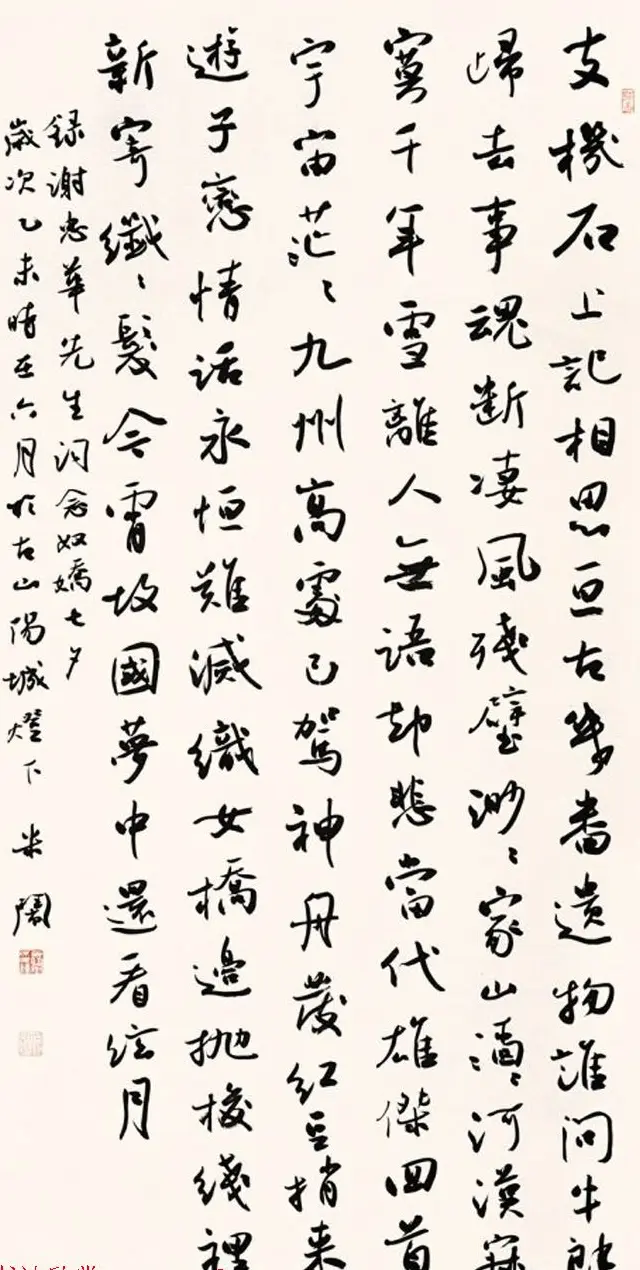 支機石上記相思亘古幾番遺物誰問牛郎
歸去事魂斷淒風殘壁渺〻家山〻河漢寂
寞千年雪離人無語却悲當代雄傑回首
宇宙茫〻九州高處已駕神舟發紅豆捎来
遊子戀情話永恒難滅織女橋邊拋梭綫裡
新寄纖〻髮今宵故國夢中還看絃月
録謝忠華先生词念奴嬌七夕
歲次乙未時在六月於古山陽城燈下 米鬧